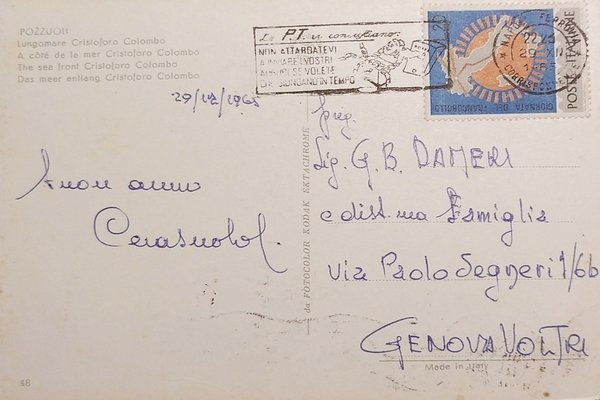 POZZUOLI
Lungomare Cristoforo Colombo
A côté de la mer Cristoforo Colombo
The sea front Cristoforo Colombo
Das meer entlang Cristoforo Colombo
Le P.T. vi consigliano:
NON ATTARDATEVI
A INVIARE I VOSTRI
AUGURI SE VOLETE
CHE GIUNGANO IN TEMPO
GIORNATA DEL FRANCOBOLLO
POSTE ITALIANE
FERROVIA
29 XII
29/12/1965
Buon anno
da FOTOCOLOR KODAK EKTACHROME
Preg.
Sig. G. B. DAMERI
e dist.ma Famiglia
via Paolo Segneri 1/6b
GENOVA VOLTRI
Made in Italy